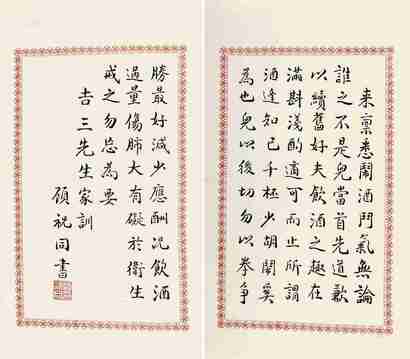 来禀悉鬧酒鬥氣無論
誰之不是兒當首先道歉
以續舊好夫飲酒之趣在
滿斟淺酌適可而止所謂
酒逢知己千極少胡鬧奚
為也兒以後切勿以拳爭
勝最好減少應酬況飲酒
過量傷肺大有礙於衛生
戒之勿忽為要
吉三先生家訓
顧祝同書